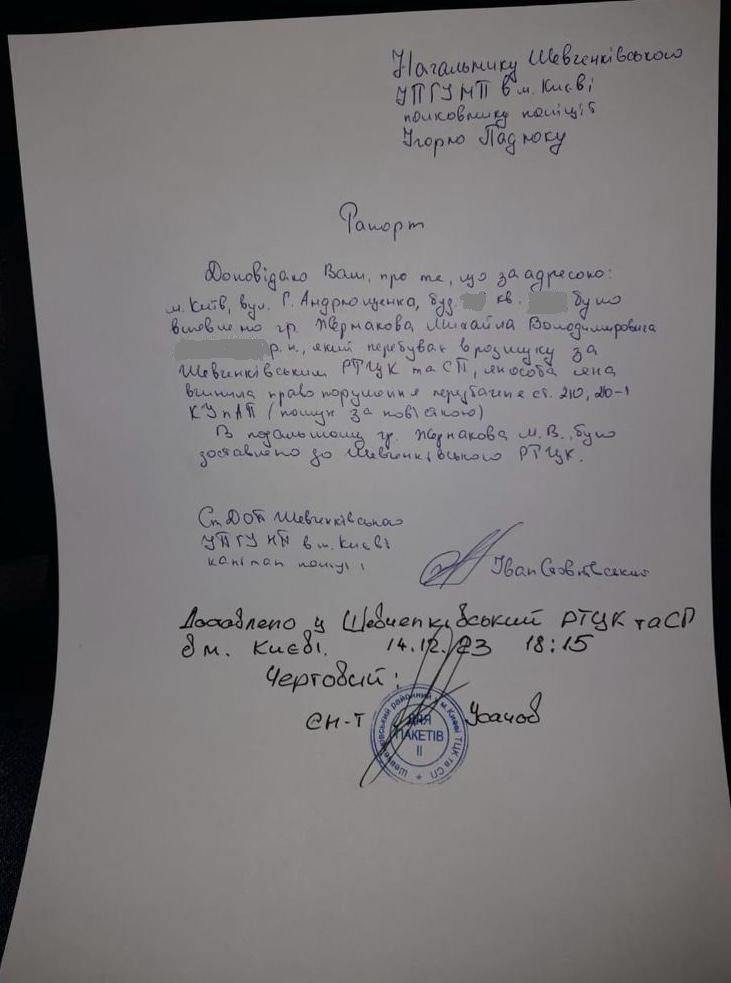 Начальнику Шевченківського
УПГУНП в м. Києві
полковнику поліції
Ігорю
Рапорт
Доповідаю Вам, про те, що за адресою:
м. Київ, вул. Г. Андрющенка, буд. кв. було
виявлено гр. Жермакова Михайла Володимировича
р.н., який перебуває в розшуку за
Шевченківським РТЦК та СП, як особа яка
вчинила правопорушення передбачене ст. 210, 210-1
КУпАП (пошук за повісткою)
В подальшому гр. Жермакова М.В., було
доставлено до Шевченківського РТЦК.
Ст ДОП Шевченківського
УПГУНП в м. Києві
капітан поліції
Іван
Доставлено у Шевченківський РТЦК та СП
в м. Києві. 14.12.23 18:15
Черговий:
ст-т Усачов
Шевченківський районний у м. Києві ТЦК та СП
ДЛЯ
ПАКЕТІВ
II